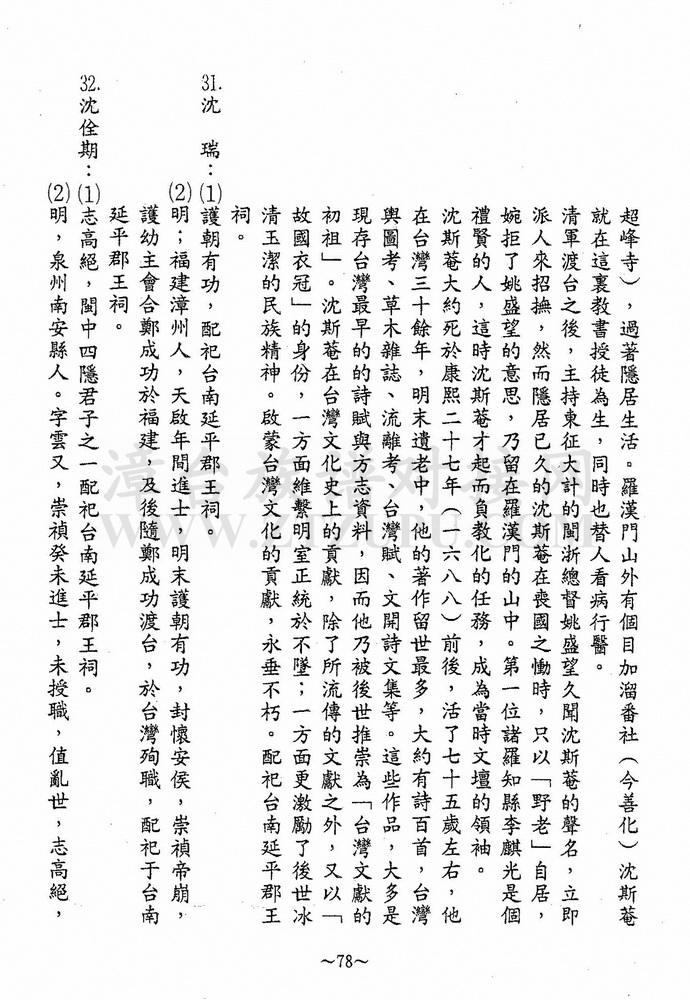 超峰寺），過著隱居生活。羅漢門山外有個目加溜番社（今善化）沈斯菴
就在這裏教書授徒為生，同時也替人看病行醫。
清軍渡台之後，主持東征大計的閩浙總督姚盛望久聞沈斯菴的聲名，立即
派人來招撫，然而隱居已久的沈斯菴在喪國之慟時，只以「野老」自居，
婉拒了姚盛望的意思，乃留在羅漢門的山中。第一位諸羅知縣李麒光是個
禮賢的人，這時沈斯菴才起而負教化的任務，成為當時文壇的領袖。
沈斯菴大約死於康熙二十七年（一六八八）前後，活了七十五歲左右，他
在台灣三十餘年，明末遺老中，他的著作留世最多，大約有詩百首，台灣
輿圖考、草木雜誌、流離考、台灣賦、文開詩文集等。這些作品，大多是
現存台灣最早的的詩賦與方志資料，因而他乃被後世推崇為「台灣文獻的
初祖」。沈斯菴在台灣文化史上的貢獻，除了所流傳的文獻之外，又以「
故國衣冠」的身份，一方面維繫明室正統於不墜；一方面更激勵了後世冰
清玉潔的民族精神。啟蒙台灣文化的貢獻，永垂不朽。配祀台南延平郡王
祠。
31.沈　瑞：⑴護朝有功，配祀台南延平郡王祠。
⑵明；福建漳州人，天啟年間進士，明末護朝有功，封懷安侯，崇禎帝崩，
護幼主會合鄭成功於福建，及後隨鄭成功渡台，於台灣殉職，配祀于台南
延平郡王祠。
32.沈佺期：⑴志高絕，閩中四隱君子之一配祀台南延平郡王祠。
⑵明，泉州南安縣人。字雲又，崇禎癸未進士，未授職，值亂世，志高絕，
～78～
漳台族譜对接网
www.ztzupu.com